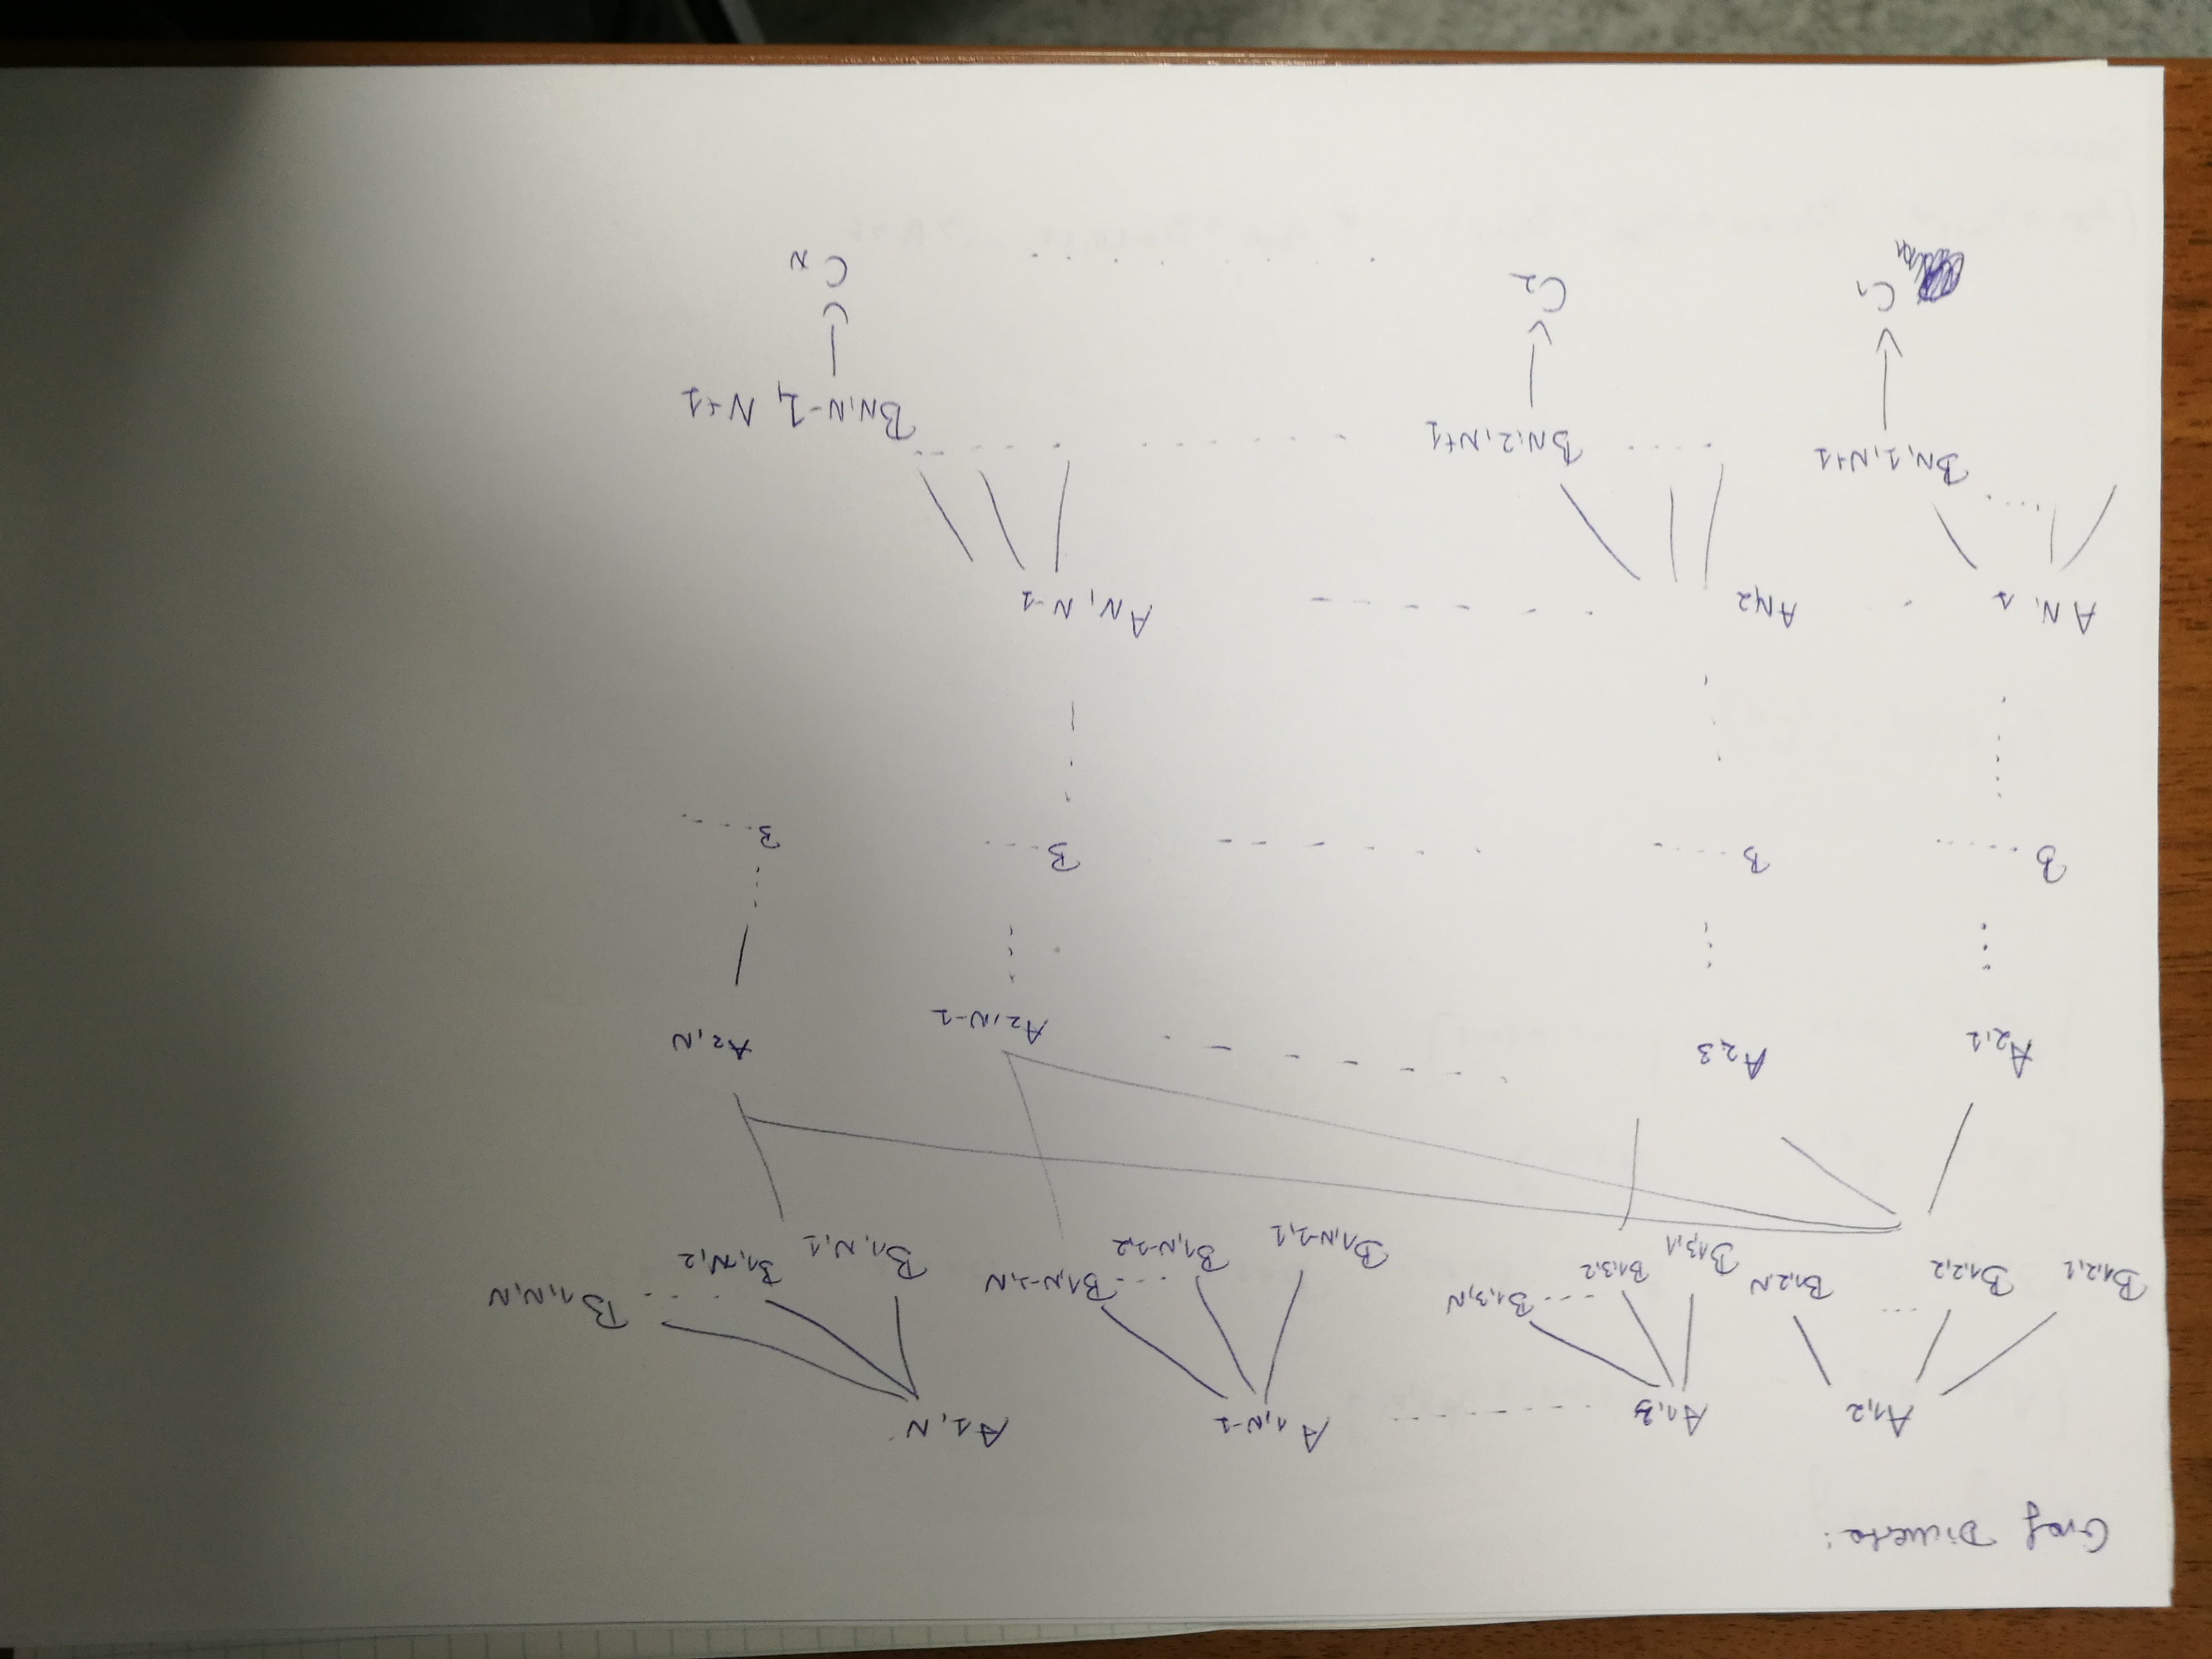 Graf Dickerta:
A1,2 A1,3 - - - - - - - A1,N-1 A1,N
B1,2,1 B1,2,2 ... B1,2,N B1,3,1 B1,3,2 ---- B1,3,N B1,N-1,1 B1,N-1,2 ---- B1,N-1,N B1,N,1 B1,N,2 ---- B1,N,N
A2,1 A2,3 - - - - - - - A2,N-1 A2,N
B ..... B ..... - - - - - B ..... B .....
AN,1 - - AN,2 - - - - - - AN,N-1
.... BN,1,N+1 .... BN,2,N+1 - - - - - - BN,N-1,N+1
C1 C2 . . . . . . CN